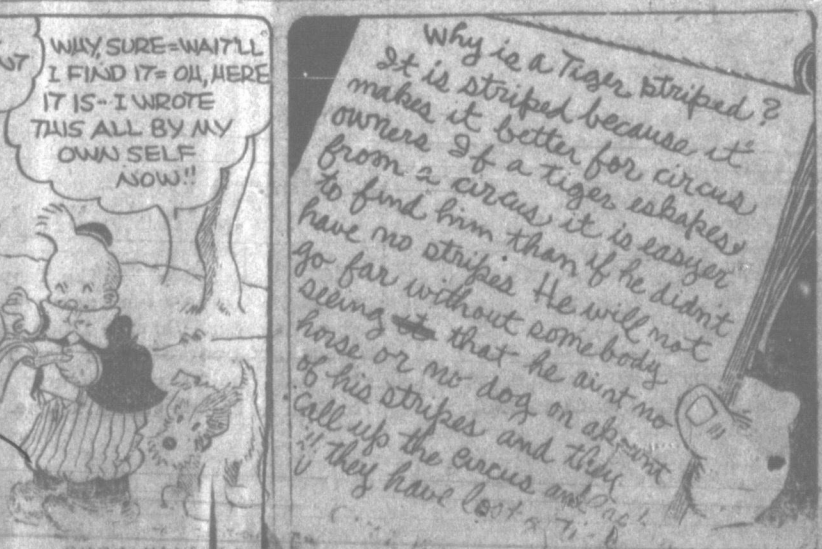 WHY, SURE=WAIT'LL
I FIND IT= OH, HERE
IT IS-- I WROTE
THIS ALL BY MY
OWN SELF
NOW!!
Why is a Tiger striped?
It is striped because it
makes it better for circus
owners If a tiger eskapes
from a circus it is easyer
to find him than if he didn't
have no stripes He will not
go far without somebody
seeing it that he aint no
horse or no dog on akount
of his stripes and they
call up the circus and
!! they have lost a